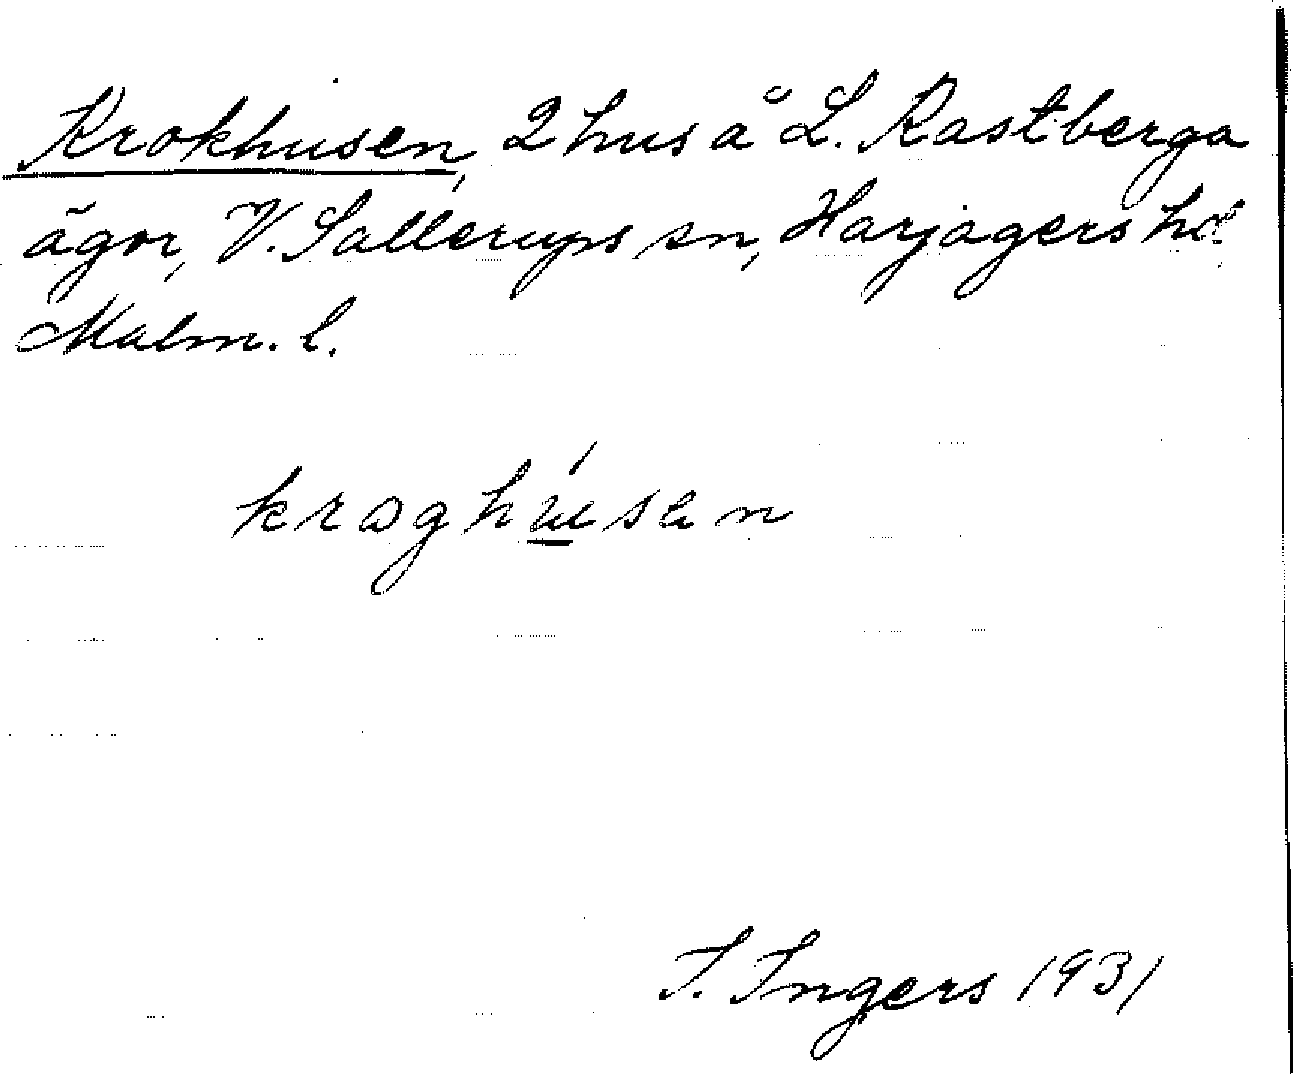 Krokhusen, 2 hus å L. Rastberga
ägor, V. Sallerups sn, Harjagers hd
Malm. l.
kroghúsen
I. Ingers 1931